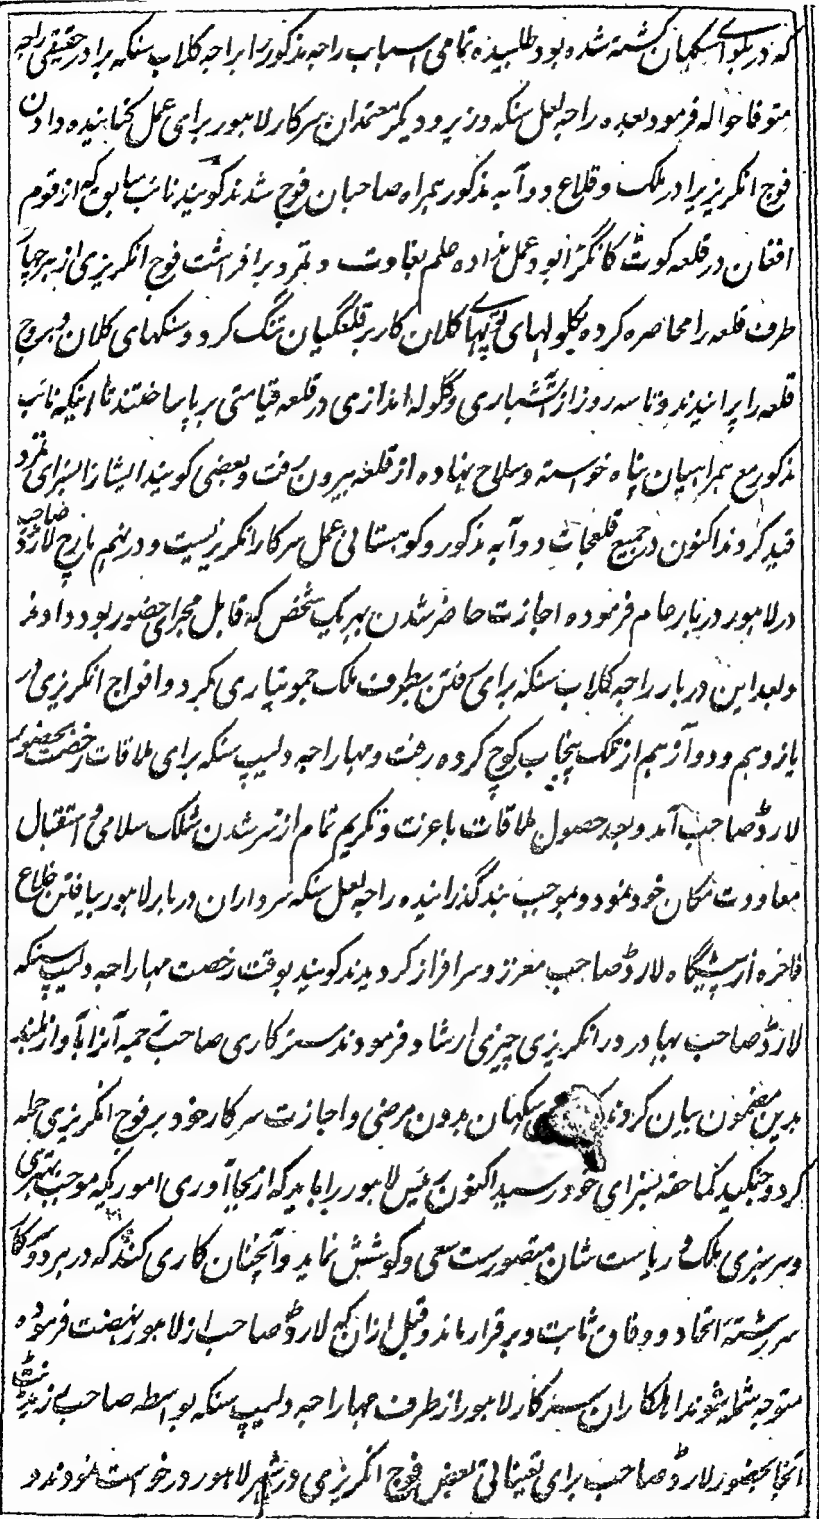 که در بلوای سکهان کشته شده بود طلبیده تمامی اسباب راجه مذکور را براجه کلاب سنکه برادر حقیقی راجه
متوفا حواله فرمود بعده راجه لعل سنکه وزیر و دیکر معتمدان سرکار لاهور برای عمل کنانیده دادن
فوج انکریز یرا در ملک و قلاع دوآبه مذکور همراه صاحبان فوج شدند کویند نائب سابق که از قوم
افغان در قلعه کوٹ کانگڑا بود عمل نداده علم بغاوت و تمرد برافراشت فوج انکریزی از هر چهار
طرف قلعه را محاصره کرده بکولهای توپهای کلان کار بر قلعگیان تنگ کرد و سنکهای کلان و بروج
قلعه را پرانیدند و تا سه روز از آتشباری و گوله اندازی در قلعه قیامتی برپا ساختند تا اینکه نائب
مذکور مع همراهیان پناه خواسته و سلاح نهاده از قلعه بیرون رفت و بعضی کویند ایشانرا بسزای تمرد
قید کردند اکنون در جمیع قلعجات دوآبه مذکور و کوهستانی عمل سرکار انکریزیست و در نهم مارچ لارڈ صاحب
در لاهور دربار عام فرموده اجازت حاضر شدن بهر یک شخص که قابل مجرای حضور بود دادند
و بعد این دربار راجه کلاب سنکه برای رفتن بطرف ملک جمو تیاری کرد و افواج انکریزی در
یازدهم و دوآزدهم از ملک پنجاب کوچ کرده رفت و مهاراجه دلیپ سنکه برای ملاقات رخصت بحضور
لارڈ صاحب آمد و بعد حصول ملاقات باعزت و تکریم تمام از سر شدن شلک سلامی و استقبال
معاودت مکان خود نمود و بموجب نذر گذرانیده راجه لعل سنکه سرداران دربار لاهور بیافتن خلاع
فاخره از پیشگاه لارڈ صاحب معزز و سرافراز کردیدند کویند بوقت رخصت مهاراجه دلیپ سنکه
لارڈ صاحب بهادر در انکریزی چیزی ارشاد فرمودند مستر کاری صاحب ترجمه آنرا بآواز بلند
بدین مضمون بیان کردند سکهان بدون مرضی و اجازت سرکار خود بر فوج انکریزی حمله
کرد و جنکید کما حقه بسزای خود رسید اکنون رئیس لاهور را باید که از بجاآوری اموریکه موجب بهتری
و سرسبزی ملک و ریاست شان متصورست سعی و کوشش نماید و آنچنان کاری کنند که در هر دو سرکار
سر رشتهٔ اتحاد و وفاق ثابت و برقرار ماند و قبل ازان که لارڈ صاحب از لاهور نهضت فرموده
متوجه شمله شوند اهلکاران سرکار لاهور از طرف مهاراجه دلیپ سنکه بواسطه صاحب رزیڈنٹ
آنجا بحضور لارڈ صاحب برای تعیناتی بعض فوج انکریزی در شهر لاهور درخواست نمودند